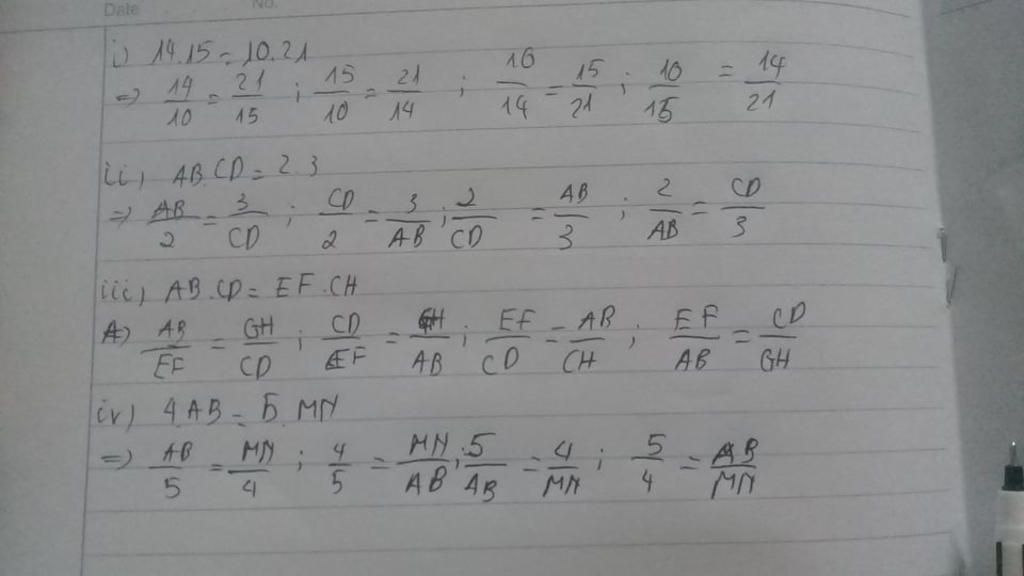 Date No.
i) 14.15 = 10.21
=> 14/10 = 21/15 ; 15/10 = 21/14 ; 10/14 = 15/21 ; 10/15 = 14/21
ii) AB.CD = 2.3
=> AB/2 = 3/CD ; CD/2 = 3/AB ; 2/CD = AB/3 ; 2/AB = CD/3
iii) AB.CD = EF.CH
=> AB/EF = GH/CD ; CD/EF = GH/AB ; EF/CD = AB/CH ; EF/AB = CD/GH
iv) 4.AB = 5.MN
=> AB/5 = MN/4 ; 4/5 = MN/AB ; 5/AB = 4/MN ; 5/4 = AB/MN